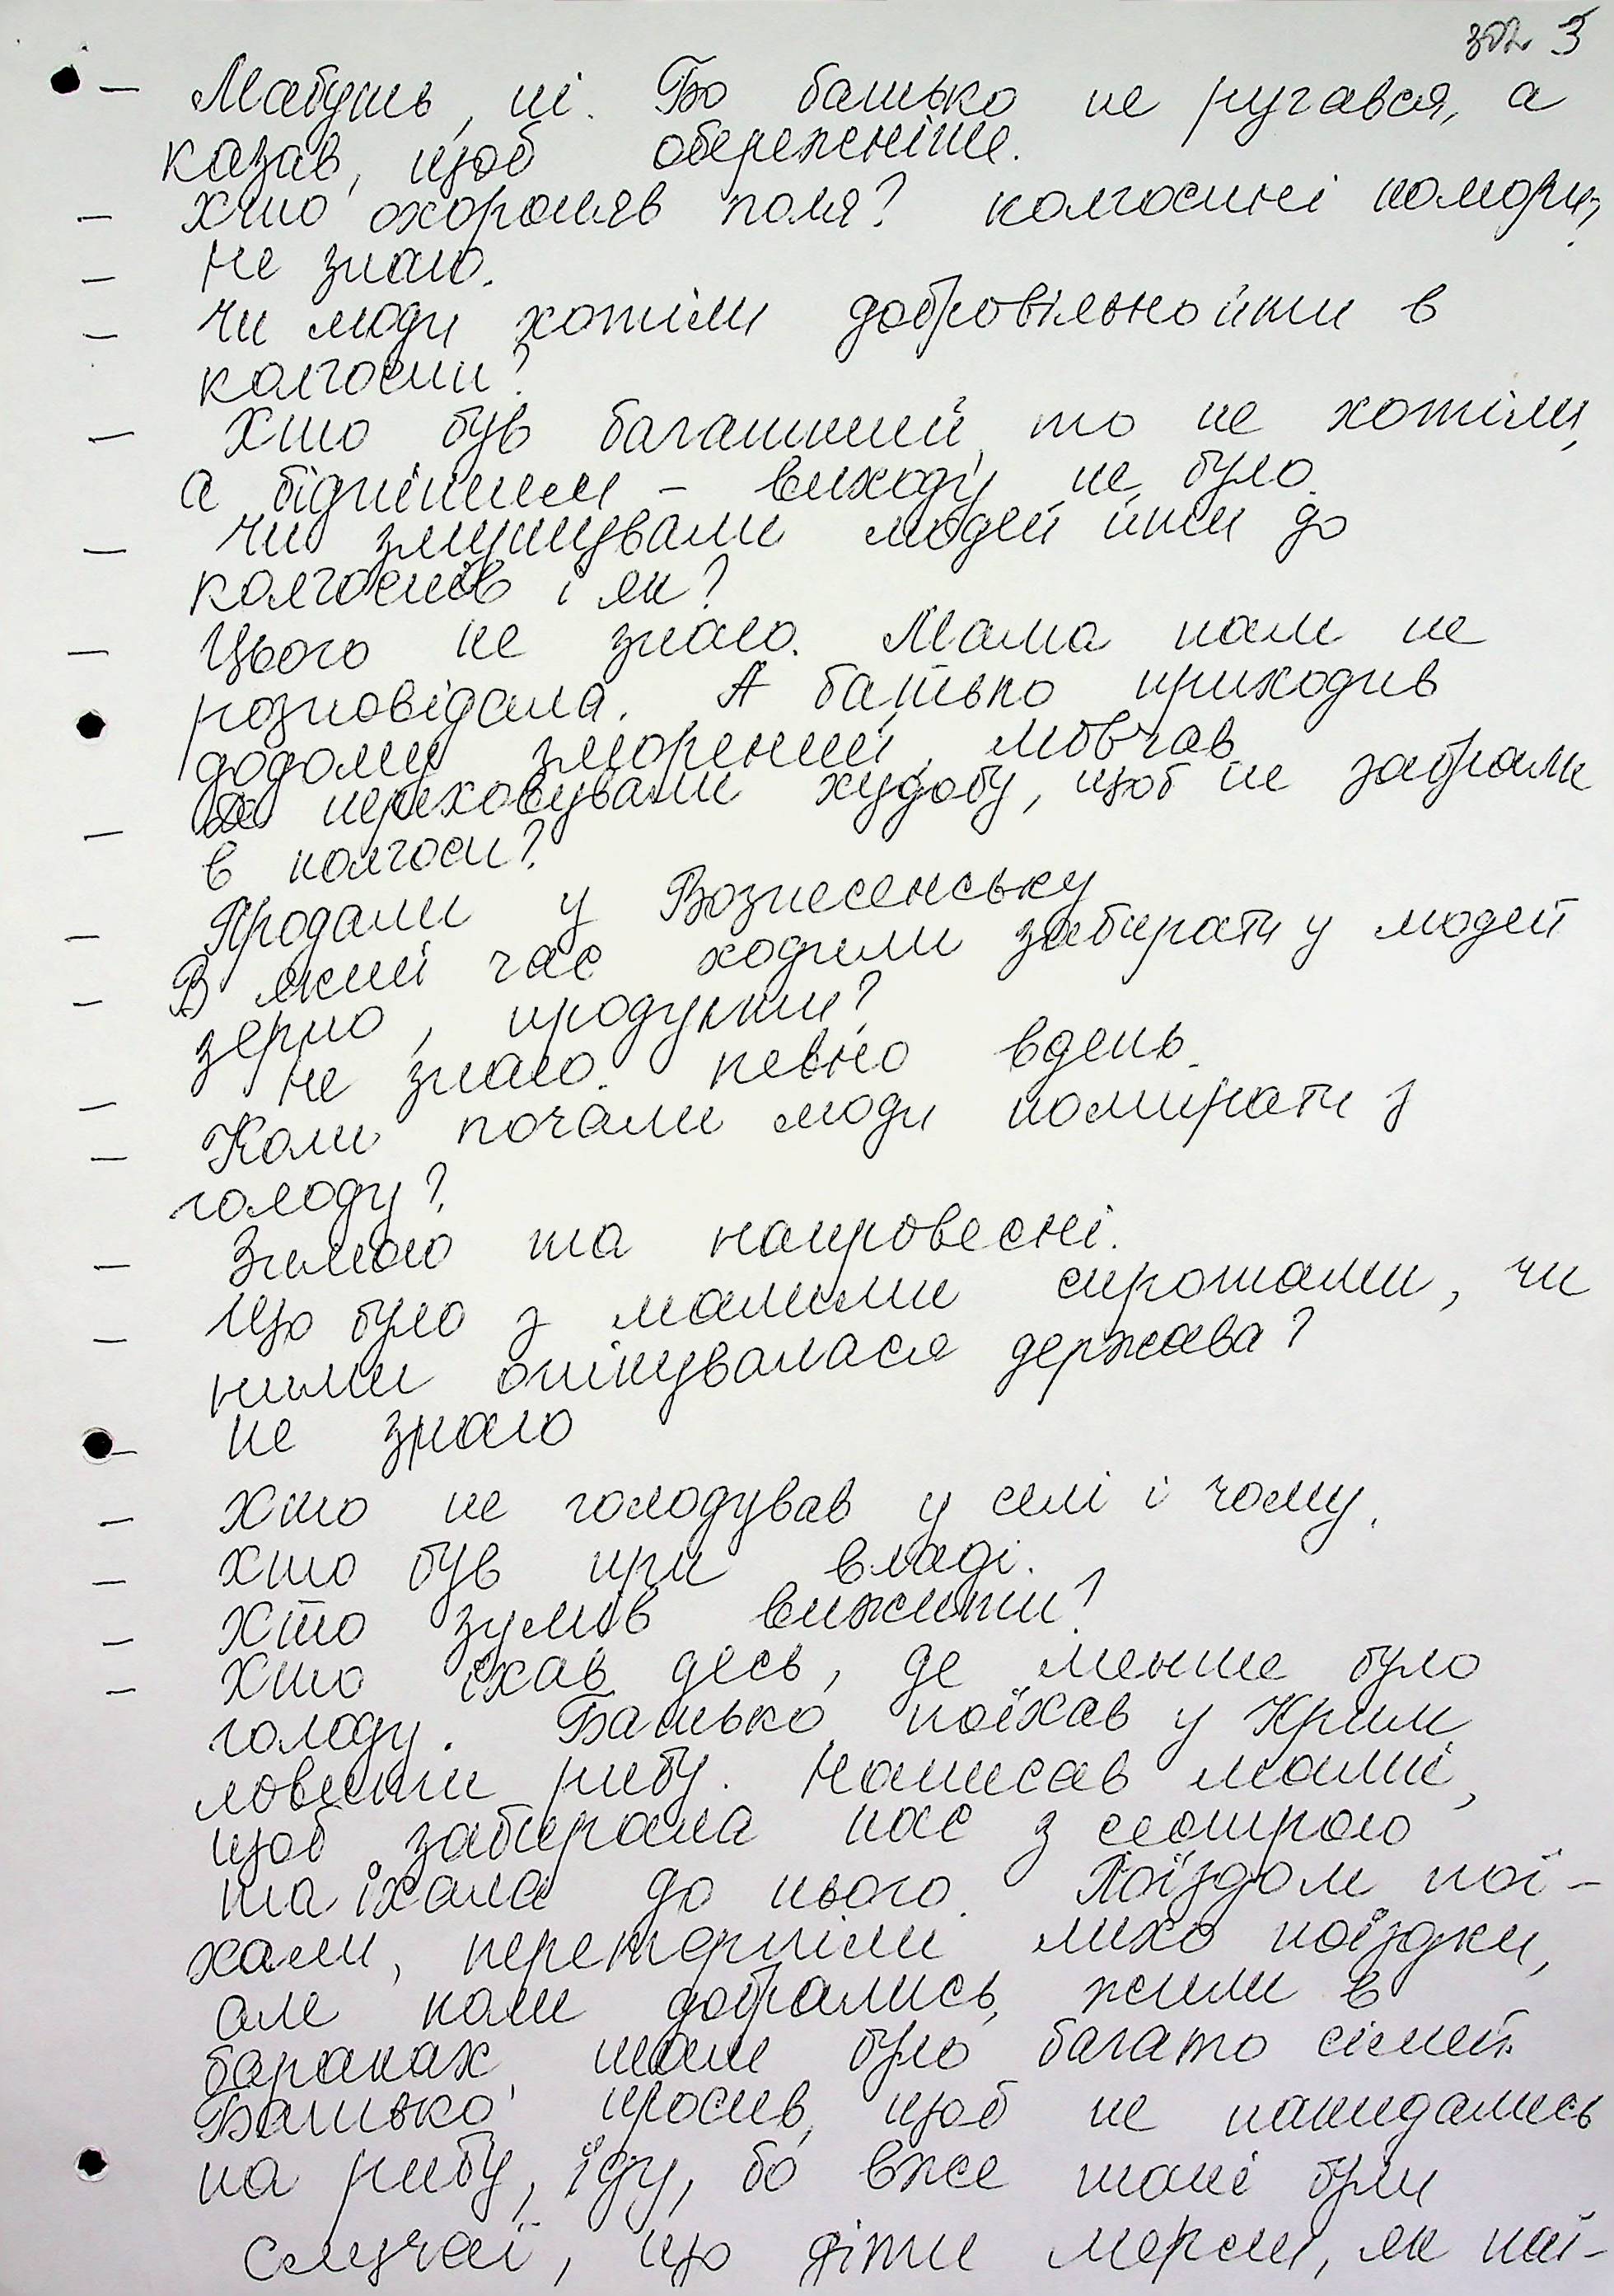 зол 3
– Мабуть, ні. Бо батько не ругався, а
казав, щоб обережніше.
– Хто охороняв поля? колгоспні комори?
– Не знаю.
– Чи люди хотіли добровільно йти в
колгоспи?
– Хто був багатший, то не хотіли,
а біднішим – виходу не було.
– Чи змушували людей йти до
колгоспів і як?
– Цього не знаю. Мама нам не
розповідала. А батько приходив
додому зморений, мовчав.
– переховували худобу, щоб не забрали
в колгосп?
– Продали у Вознесенську
– В який час ходили забирати у людей
зерно, продукти?
– Не знаю. певно вдень.
– Коли почали люди помирати з
голоду?
– Зимою та напровесні.
– Що було з малими сиротами, чи
ними опікувалася держава?
– не знаю
– Хто не голодував у селі і чому.
– Хто був при владі.
– Хто зумів вижити?
– Хто їхав десь, де менше було
голоду. Батько поїхав у Крим
ловити рибу. Написав мамі,
щоб забирала нас з сестрою
та їхала до нього. Поїздом пої-
хали, перетерпіли лихо поїздки,
але коли добрались, жили в
бараках, там було багато сімей.
Батько просив, щоб не накидались
на рибу, їду, бо вже такі були
случаї, що діти мерли, як наї-